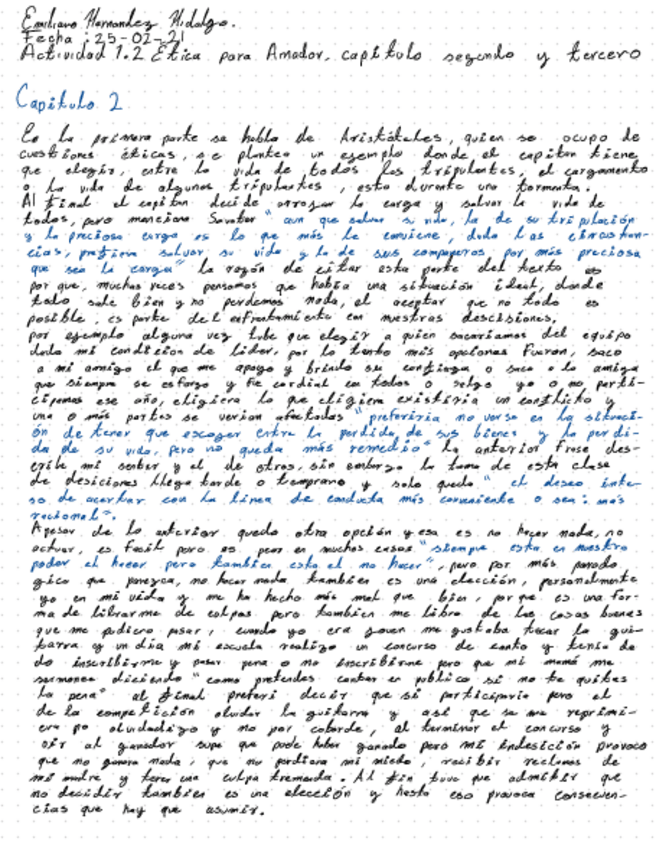 Emiliano Hernandez Hidalgo.
Fecha : 25-02-21
Actividad 1.2 Ética para Amador, capítulo segundo y tercero
Capitulo 2
En la primera parte se habla de Aristóteles, quien se ocupo de
cuestiones éticas, se plantea un ejemplo donde el capitan tiene
que elegir, entre la vida de todos los tripulantes, el cargamento
o la vida de algunos tripulantes, esto durante una tormenta.
Al final el capitan decide arrojar la carga y salvar la vida de
todos, pero menciona Savater "aun que salvar su vida, la de su tripulación
y la preciosa carga es lo que más le conviene, dada las circustan-
cias, prefiere salvar su vida y la de sus compañeros por más preciosa
que sea la carga" la razón de citar esta parte del texto es
por que, muchas veces pensamos que habia una situación ideal, donde
todo sale bien y no perdemos nada, el aceptar que no todo es
posible, es parte del enfrentamiento con nuestras descisiones,
por ejemplo alguna vez tube que elegir a quien sacariamos del equipo
dada mi condicion de lider, por lo tanto más opciones fueron, saco
a mi amigo el que me apoya y brinda su confianza o saco a la amiga
que siempre se esforzo y fie cordial con todos o salgo yo o no parti-
cipamos ese año, eligiera lo que eligiera existiria un conflicto y
una o más partes se verian afectadas "preferiria no verse en la situaci-
ón de tener que escoger entre la perdida de sus bienes y la perdi-
da de su vida, pero no queda más remedio" la anterior frase des-
cribe mi sentir y el de otros, sin embargo la toma de esta clase
de desiciones llega tarde o temprano y solo queda "el deseo inte-
so de acertar con la linea de conducta más conveniente o sea: más
racional".
Apesar de lo anterior queda otra opción y esa es no hacer nada, no
actuar, es facil pero es peor en muchos casos "siempre esta en nuestro
poder el hacer pero tambien esta el no hacer", pero por más parado
gico que parezca, no hacer nada tambien es una elección, personalmente
yo en mi vida y me ha hecho más mal que bien, porque es una for-
ma de librarme de culpas pero tambien me libra de las cosas buenas
que me pudiera pasar, cuando yo era joven me gustaba tocar la gui-
tarra y un dia mi escuela realizo un concurso de canto y tenia du
do inscribirme y pasar pena o no inscribirme para que mi mamá me
sermonea diciendo "como pretendes cantar en publico si no te quitas
la pena" al final preferi decir que si participaria pero el
de la competición olvidar la guitarra y asi que se me reprimi-
era por olvidadizo y no por cobarde, al terminar el concurso y
oír al ganador supe que pude haber ganado pero mi indesición provoco
que no ganara nada, que no perdiera mi miedo, recibir reclamos de
mi madre y tener una culpa tremenda. Al fin tuve que admitir que
no decidir tambien es una elección y hasta eso provoca consecuen-
cias que hay que asumir.